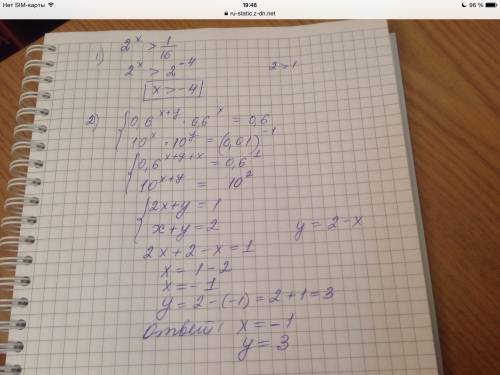 Нет SIM-карты 19:46 96 %
ru-static.z-dn.net
1) 2^x > 1/16
2^x > 2^-4 2 > 1
[x > -4]
2) { 0,6^x+y · 0,6^x = 0,6
10^x · 10^y = (0,01)^-1
{ 0,6^x+y+x = 0,6^1
10^x+y = 10^2
{ 2x+y = 1
x+y = 2 y = 2-x
2x+2-x = 1
x = 1-2
x = -1
y = 2-(-1) = 2+1 = 3
Ответ: x = -1
y = 3